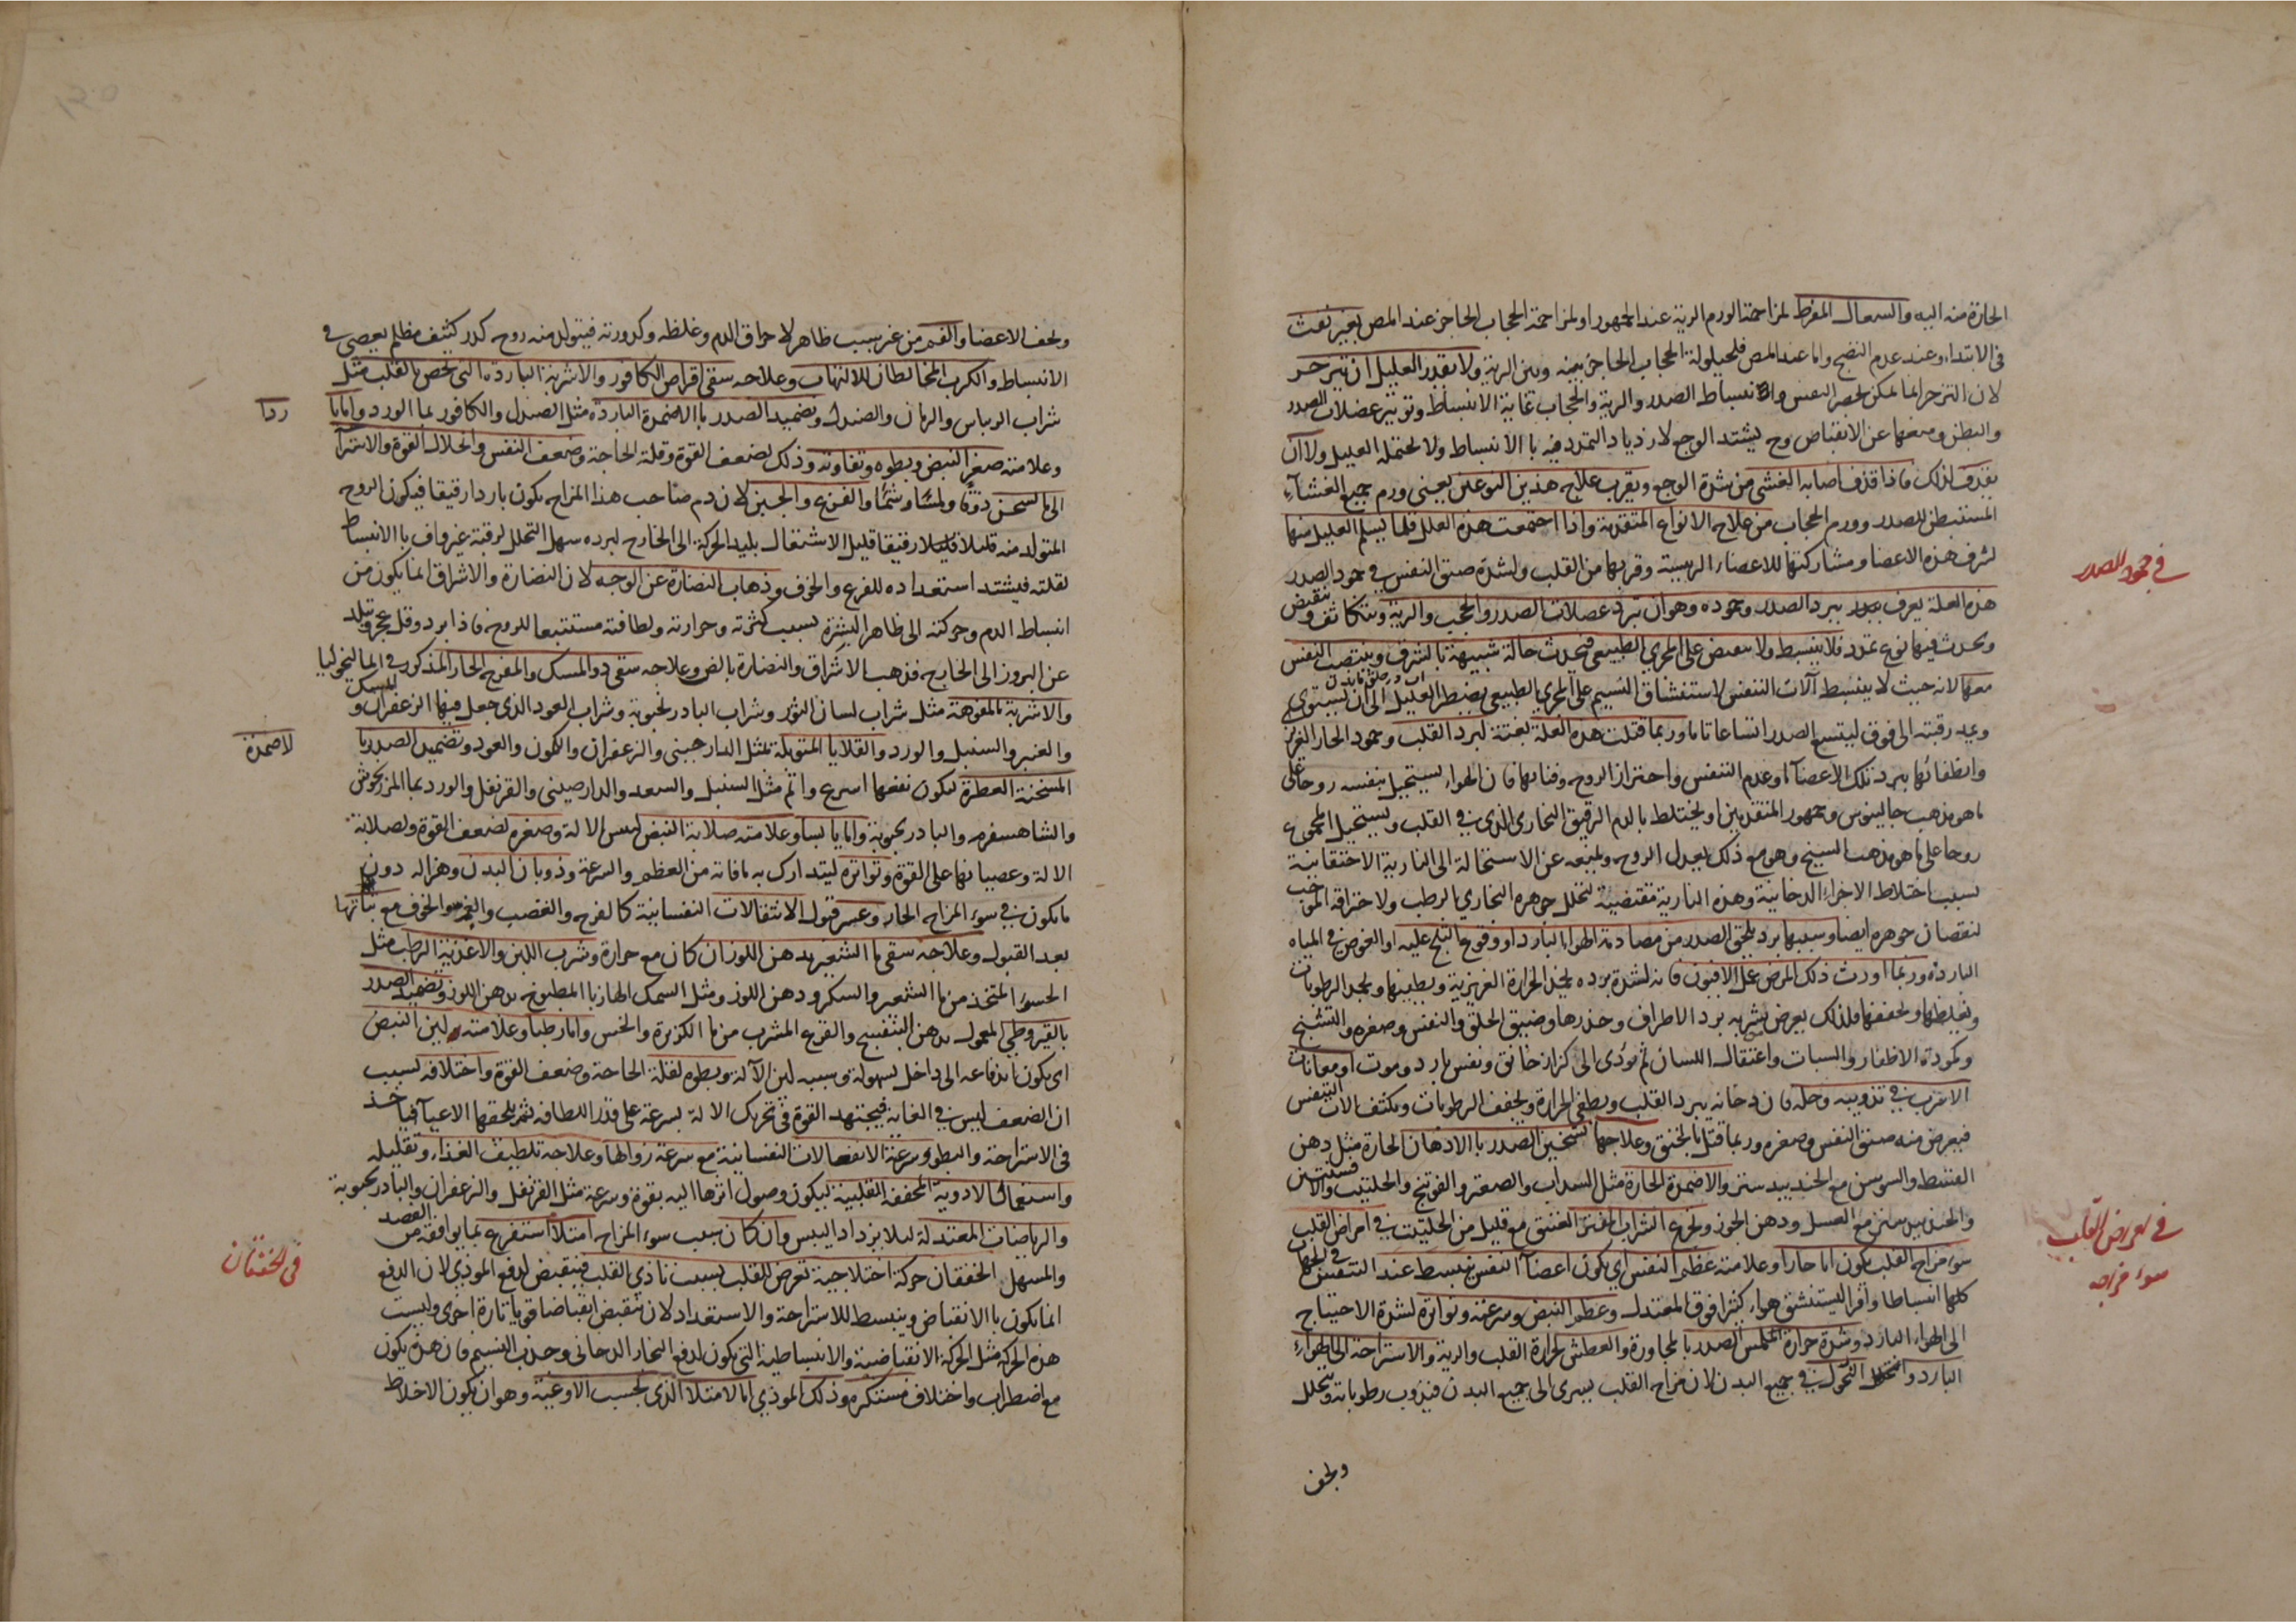 الحارة منه اليه والسعال المفرط لمزاحمة الورم الرية عند الجمهور او لمزاحمة الحجاب الحاجز عند المص بغير نفث
فى الابتداء وعند عدم النضج واما عند المص فلحيلولة الحجاب الحاجز بينه وبين الرية ولا يقدر العليل ان يتزحر
لان التزحر انما يمكن بحصر النفس وانبساط الصدر والرية والحجاب غاية الانبساط وتوتر عضلات الصدر
والبطن ومنعها عن الانقباض وح يشتد الوجع لازدياد التمدد فيه با الانبساط ولا يحتمله العليل ولا ان
يقذف لذلك فاذا قذف اصابه الغشى من شدة الوجع ويقرب علاج هذين النوعين يعنى ورم جميع الغشآء
المستبطن للصدر وورم الحجاب من علاج الانواع المتقدمة واذا اجتمعت هذه العلل قلما يسلم العليل منها
لشرف هذه الاعضا ومشاركتها للاعضاء الرييسة وقربها من القلب ولشدة ضيق النفس فى جمود الصدر
فى جمود الصدر
هذه العلة يعرف ببرد الصدر وجموده وهو ان تبرد عضلات الصدر والحجب والرية وتتكاثف وتنقبض
ويحدث فيها نوع تمدد فلا ينبسط ولا ينقبض على المجرى الطبيعى فيحدث حالة شبيهة بالشرق وينتصب النفس
معها لانه حيث لا ينبسط آلات التنفس لاستنشاق النسيم على المجرى الطبيعى يضطر العليل الى ان يستوى
ويمد رقبته الى فوق ليتسع الصدر اتساعا تاما وربما قتلت هذه العلة بغتة لبرد القلب وجمود الحار الغريزى
وانطفائها ببرد تلك الاعضآ او عدم التنفس واحتراز الروح وفنائها فان الهواء يستحيل بنفسه روحا على
ما هو مذهب جالينوس وجمهور المتقدمين او يختلط بالدم الرقيق البخارى الذى فى القلب ويستحيل المجموع
روحا على ما هو مذهب الشيخ وهو مع ذلك يعدل الروح ويمنعه عن الاستحالة الى النارية الاحتقانية
بسبب اختلاط الاجزاء الدخانية وهذه النارية مقتضية لتحلل جوهره البخارى الرطب ولاحتراقه الموجب
لنقصان جوهره ايضا وسببها برد يلحق الصدر من مصادمة الهواء البارد او وقوع الثلج عليه او الغوص فى المياه
الباردة وربما اورث ذلك المرض على الافيون فانه لشدة برده يجمد الحرارة الغريزية ويطفيها ويجمد الرطوبات
ويغلظها ويجففها فلذلك يعرض بشربه برد الاطراف وخدرها وضيق الحلق والنفس وصغره والتشنج
وكمودة الاظفار والسبات واعتقال اللسان ثم يودى الى كزاز خانق ونفس بارد وموت او معانات
الافيون فى تذويبه وحله فان دخانه يبرد القلب ويطفى الحرارة ويجفف الرطوبات ويكثف الات التنفس
فيعرض منه ضيق النفس وصغره وربما قتل بالخنق وعلاجها تسخين الصدر با الادهان الحارة مثل دهن
القسط والسوسن مع الجندبيدستر والاضمدة الحارة مثل السداب والصعتر والفوتنج والحلتيت والافسنتين
والجندبيدستر مع العسل ودهن الجوز وتجرع الشراب العتيق مع قليل من الحلتيت فى امراض القلب
فى امراض القلب
سوء مزاج القلب يكون اما حارا وعلامته عظم النفس اى يكون اعضآ النفس ينبسط عند التنفس فى الجهات
سوء مزاجه
كلها انبساطا وافرا ليستنشق هواء كثيرا فوق المعتدل وعظم النبض وسرعته وتواتره لشدة الاحتياج
الى الهواء البارد وشدة حرارة ملمس الصدر با لمجاورة والعطش لحرارة القلب والرية والاستراحة الى الهواء
البارد والنحول فى جميع البدن لان مزاج القلب يسرى الى جميع البدن فيذوب رطوباته ويتحلل
ويجف
ويجف الاعضا والغم من غير سبب ظاهر لاحراق الدم وغلظه وكدورته فيتولد منه روح كدر كثيف مظلم يعصى فى
الانبساط والكرب المخالطان للالتهاب وعلاجه سقى اقراص الكافور والاشربة الباردة التى تخص بالقلب مثل
شراب الريباس والرمان والصندل وتضميد الصدر با الاضمدة الباردة مثل الصندل والكافور بما الورد واما با
ردا
وعلامته صغر النبض وبطوه وتفاوته وذلك لضعف القوة وقلة الحاجة وضعف النفس وانحلال القوة والاسترآ
الى ما يسخن ذوقا ولمسا وشما والفزع والجبن لان دم صاحب هذا المزاج يكون باردا رقيقا فيكون الروح
المتولد منه قليلا رقيقا قليل الاشتعال بليد الحركة الى الخارج لبرده سهل التحلل لرقته غير واف با الانبساط
لقلته فيشتد استعداده للفزع والخوف وذهاب النضارة عن الوجه لان النضارة والاشراق انما يكون من
انبساط الدم وحركته الى ظاهر البشرة بسبب كثرته وحرارته ولطافته مستتبعا للروح فاذا برد وقل عجز وتبلد
عن البروز الى الخارج فذهب الاشراق والنضارة بالض وعلاجه سقى دو المسك والمفرح الحار المذكور فى المالنخوليا
والاشربة المفوهة مثل شراب لسان الثور وشراب البادرنجبوية وشراب العود الذى جعل فيها الزعفران والمسك
والعنبر والسنبل والورد والقلايا المتوبلة بمثل الدارجينى والزعفران والكمون والعود وتضميد الصدر با
لاضمدة
المسخنة العطرة ليكون نفعها اسرع واتم مثل السنبل والسعد والدارصينى والقرنفل والورد بما المرزنجوش
والشاهسفرم والبادرنجبوية واما يابسا وعلامته صلابة النبض ليبس الالة وصغره لضعف القوة ولصلابة
الالة وعصيانها على القوة وتواتره ليتدارك به ما فاته من العظم والسرعة وذوبان البدن وهزاله دون
ما يكون فى سوء المزاج الحار وعسر قبول الانتقالات النفسانية كالفرح والغضب والغم والخوف مع ثباتها
بعد القبول وعلاجه سقى ما الشعير بدهن اللوز ان كان مع حرارة وشرب اللبن والاغذية الرطب مثل
الحسوء المتخذ من ما الشعير والسكر ودهن اللوز ومثل السمك الهازبا المطبوخ بدهن اللوز وتضميد الصدر
بالقيروطى المعمول بدهن البنفسج والقرع المشرب من ما الكزبرة والخس واما رطبا وعلامته لين النبض
اى يكون اندفاعه الى داخل بسهولة وسببه لين الآلة وبطوه لقلة الحاجة وضعف القوة واختلافه لسبب
ان الضعف ليس فى الغاية فيجتهد القوة فى تحريك الالة بسرعة على قدر الطاقة ثم يلحقها الاعيآ فياخذ
فى الاستراحة والبطوء وسرعة الانفعالات النفسانية مع سرعة زوالها وعلاجه تلطيف الغذاء وتقليله
واستعمال الادوية المجففة القلبية ليكون وصول اثرها اليه بقوة وسرعة مثل القرنفل والزعفران والبادرنجبوية
والرياضات المعتدلة ليلا يزداد اليبس وان كان سبب سوء المزاج امتلآ استفرغ بما يوافقه من الفصد
والمسهل الخفقان حركة اختلاجية تعرض للقلب بسبب تاذى القلب فينقبض لدفع الموذى لان الدفع
فى الخفقان
انما يكون با الانقباض وينبسط للاستراحة والاستعداد لان ينقبض انقباضا قويا تارة اخرى وليست
هذه الحركة مثل الحركة الانقباضية والانبساطية التى يكون لدفع البخار الدخانى وجذب النسيم فان هذه يكون
مع اضطراب واختلاف مستنكره وذلك الموذي اما لامتلا الذى بحسب الاوعية وهو ان يكون الاخلاط